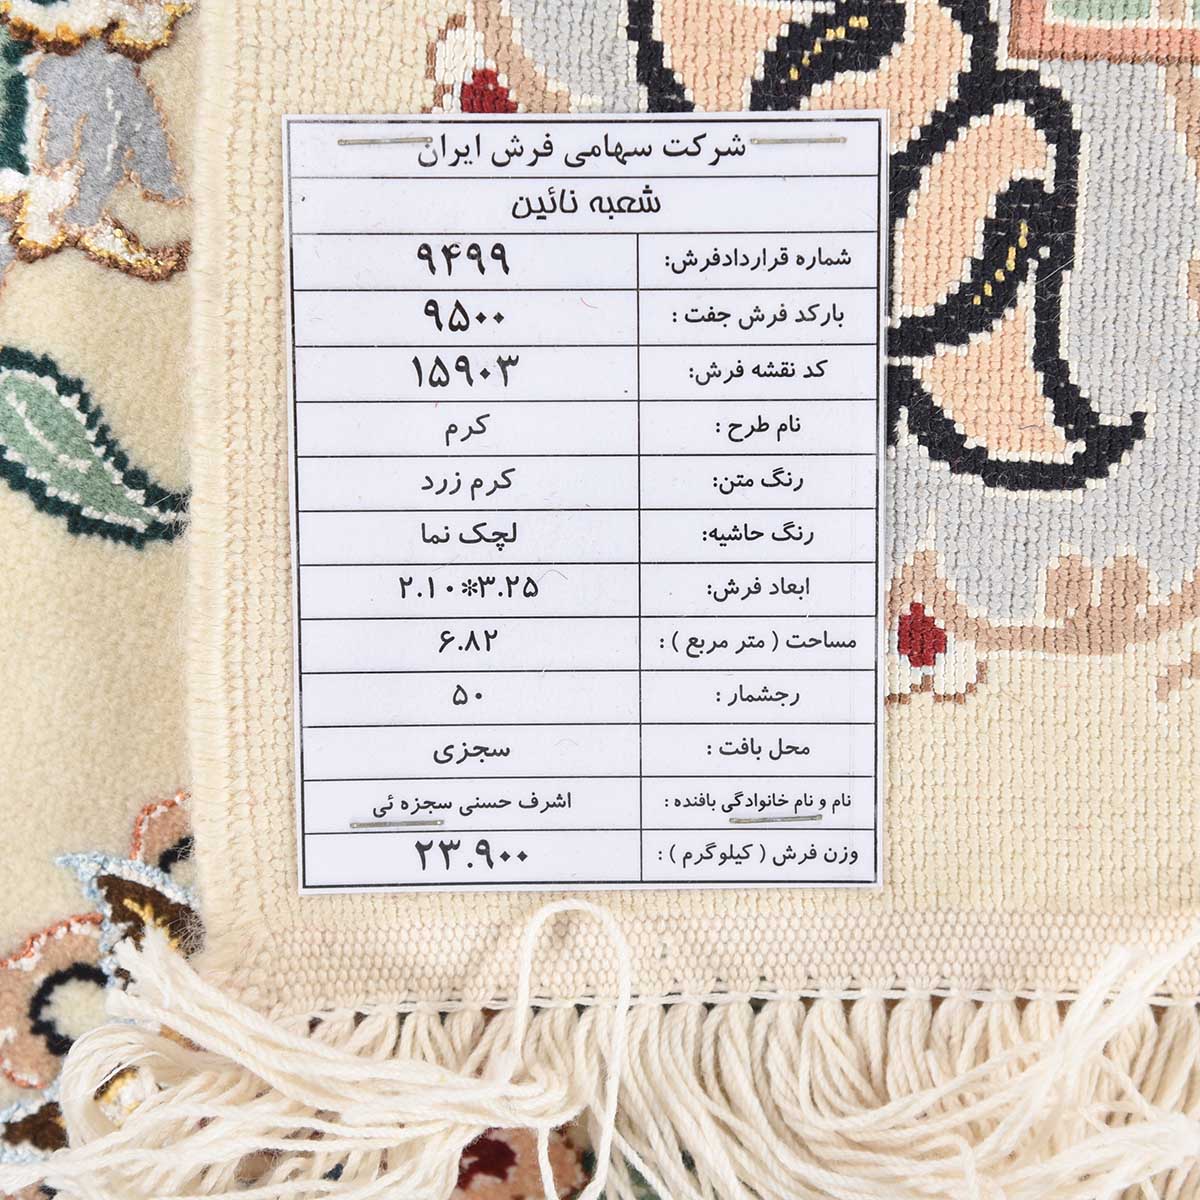 شرکت سهامی فرش ایران
شعبه نائین
شماره قراردادفرش: ۹۴۹۹
بارکد فرش جفت : ۹۵۰۰
کد نقشه فرش: ۱۵۹۰۳
نام طرح : کرم
رنگ متن: کرم زرد
رنگ حاشیه: لچک نما
ابعاد فرش: ۲.۱۰*۳.۲۵
مساحت ( متر مربع ) : ۶.۸۲
رجشمار : ۵۰
محل بافت : سجزی
نام و نام خانوادگی بافنده : اشرف حسنی سجزه ئی
وزن فرش ( کیلوگرم ) : ۲۳.۹۰۰